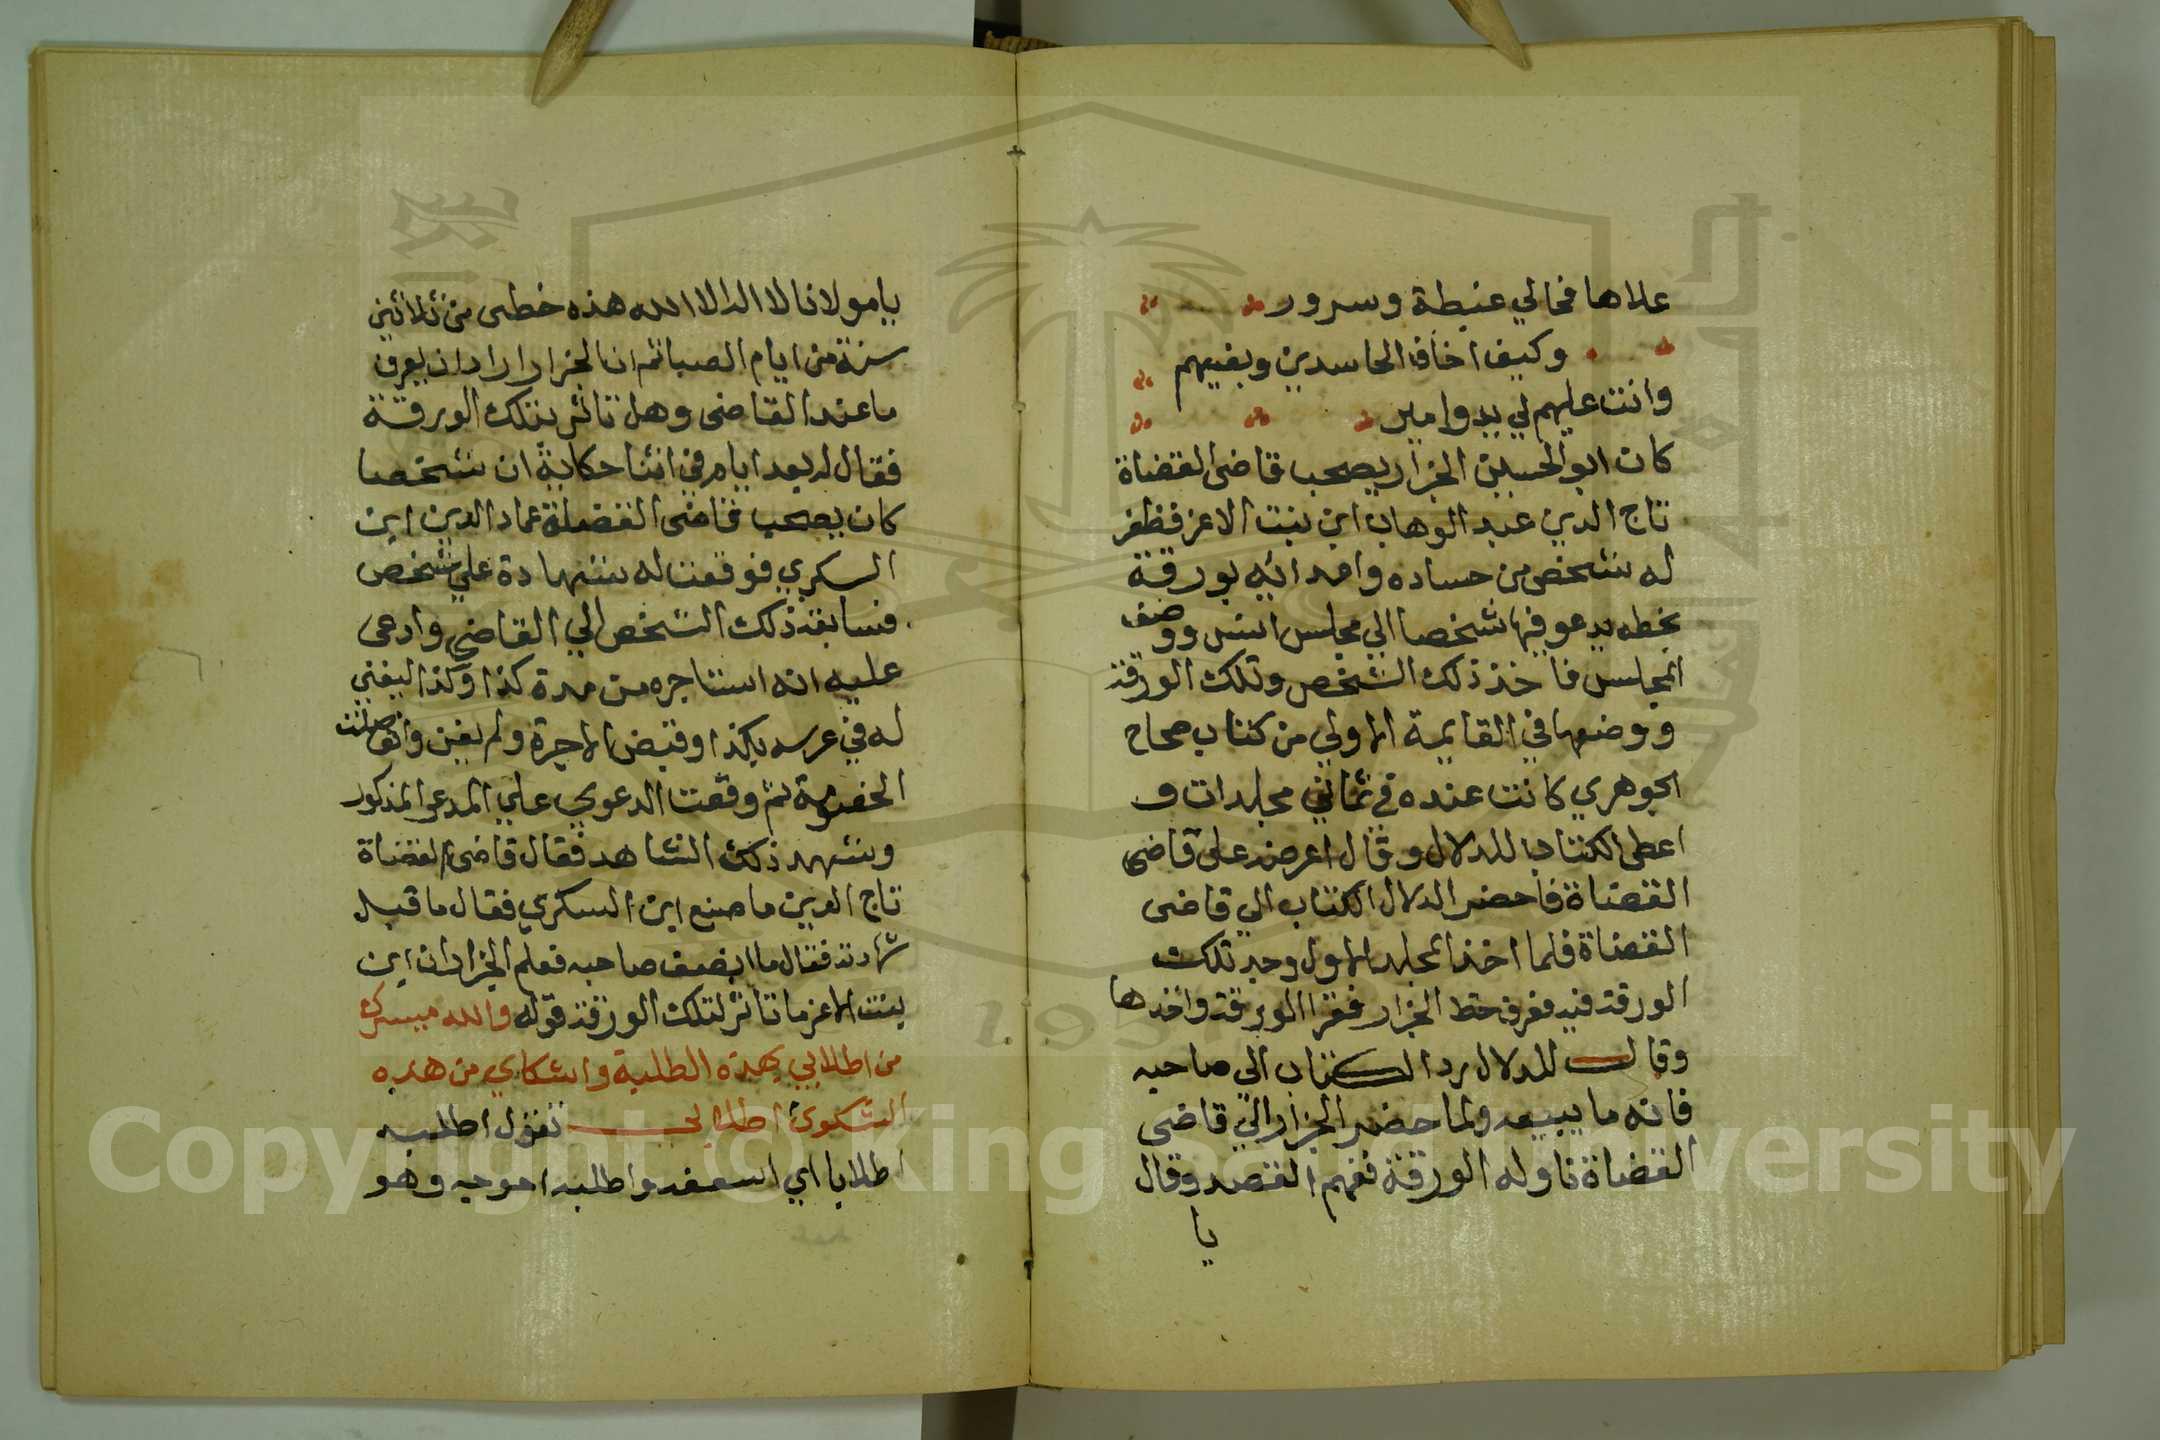 علاها فحالي غبطة وسرور
وكيف اخاف الحاسدين وبغيهم
وانت عليهم لي يد وامير
كان ابو الحسين الجزار يصحب قاضى القضاة
تاج الدين عبد الوهاب ابن بنت الاعز فظفر
له شخص من حساده واعدائه بورقة
بخطه يدعو فيها شخصا الي مجلس انس ووصف
المجلس فاخذ ذلك الشخص وتلك الورقة
ووضعها في القايمة الاولي من كتاب صحاح
الجوهري كانت عنده في ثماني مجلدات و
اعطى الكتاب للدلال وقال اعرضه على قاضى
القضاة فاحضر الدلال الكتاب الي قاضى
القضاة فلما اخذ المجلد الاول وجد تلك
الورقة فيه فعرف خط الجزار فقرا الورقة واخدها
وقال للدلال رد الكتاب الى صاحبه
فانه ما يبيعه ولما حضر الجزار الي قاضى
القضاة ناوله الورقة ففهم القصد وقال
يا
يامولانا لا اله الا الله هذه خطى من ثلاثين
سنة من ايام الصبا ثم ان الجزار اراد ان يعرف
ما عند القاضى وهل تاثر بتلك الورقة
فقال له بعد ايام في اثنا حكاية ان شخصا
كان يصحب قاضى القضاة عماد الدين ابن
السكري فوقعت له شهادة علي شخص
فسابقه ذلك الشخص الي القاضي وادعى
عليه انه استاجره من مدة كذا وكذا ليغني
له في عرسه بكذا وقبض الاجرة ولم يغن وانفصلت
الخصومة ثم وقعت الدعوي علي المدعي المذكور
وشهد ذلك الشاهد فقال قاضى القضاة
تاج الدين ما صنع ابن السكري فقال ما قبل
شهادته فقال ما انصف صاحبه فعلم الجزار ان ابن
بنت الاعز ما تاثر لتلك الورقة قوله والله ميسرك
من اطلابي بهذه الطلبة واشكاي من هذه
الشكوى اطلابي تقول اطلبه
اطلابا اي اسعفه واطلبه احوجه وهو
Copyright © King Saud University
1957